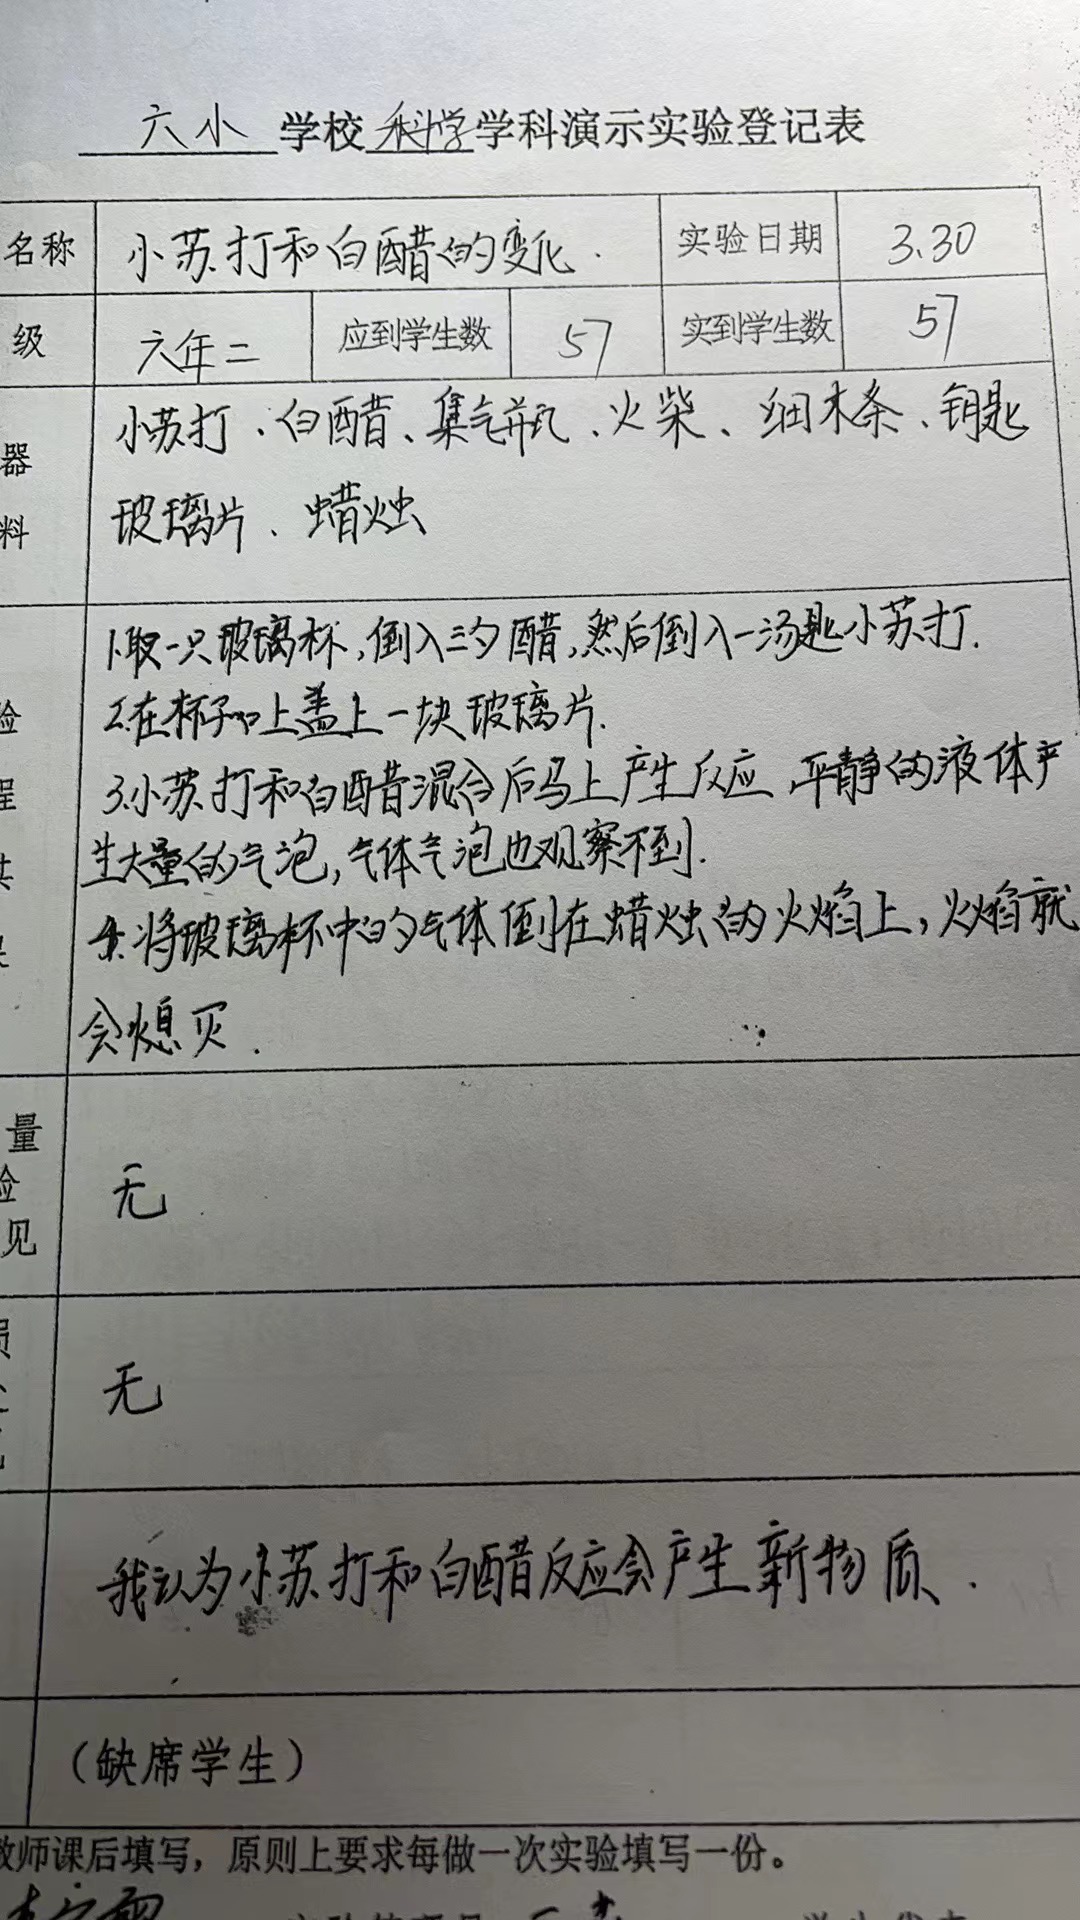 六小 学校 科学 学科演示实验登记表
名称 小苏打和白醋的变化. 实验日期 3.30
级 六年二 应到学生数 57 实到学生数 57
器 小苏打、白醋、集气瓶、火柴、细木条、钥匙
料 玻璃片、蜡烛
1.取一只玻璃杯,倒入三勺醋,然后倒入一汤匙小苏打.
验 2.在杯子口上盖上一块玻璃片.
程 3.小苏打和白醋混合后马上产生反应,平静的液体产
生大量的气泡,气体气泡也观察不到.
4.将玻璃杯中的气体倒在蜡烛的火焰上,火焰就
会熄灭.
量
验 无
见
无
我认为小苏打和白醋反应会产生新物质.
(缺席学生)
教师课后填写,原则上要求每做一次实验填写一份。